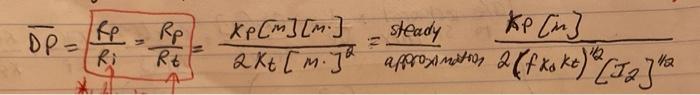 D̅P̅ = Rp/Ri = Rp/Rt = Kp[m][m·]/2Kt[m·]² = steady approximation Kp[m]/2(fKdKt)^1/2 [I2]^1/2